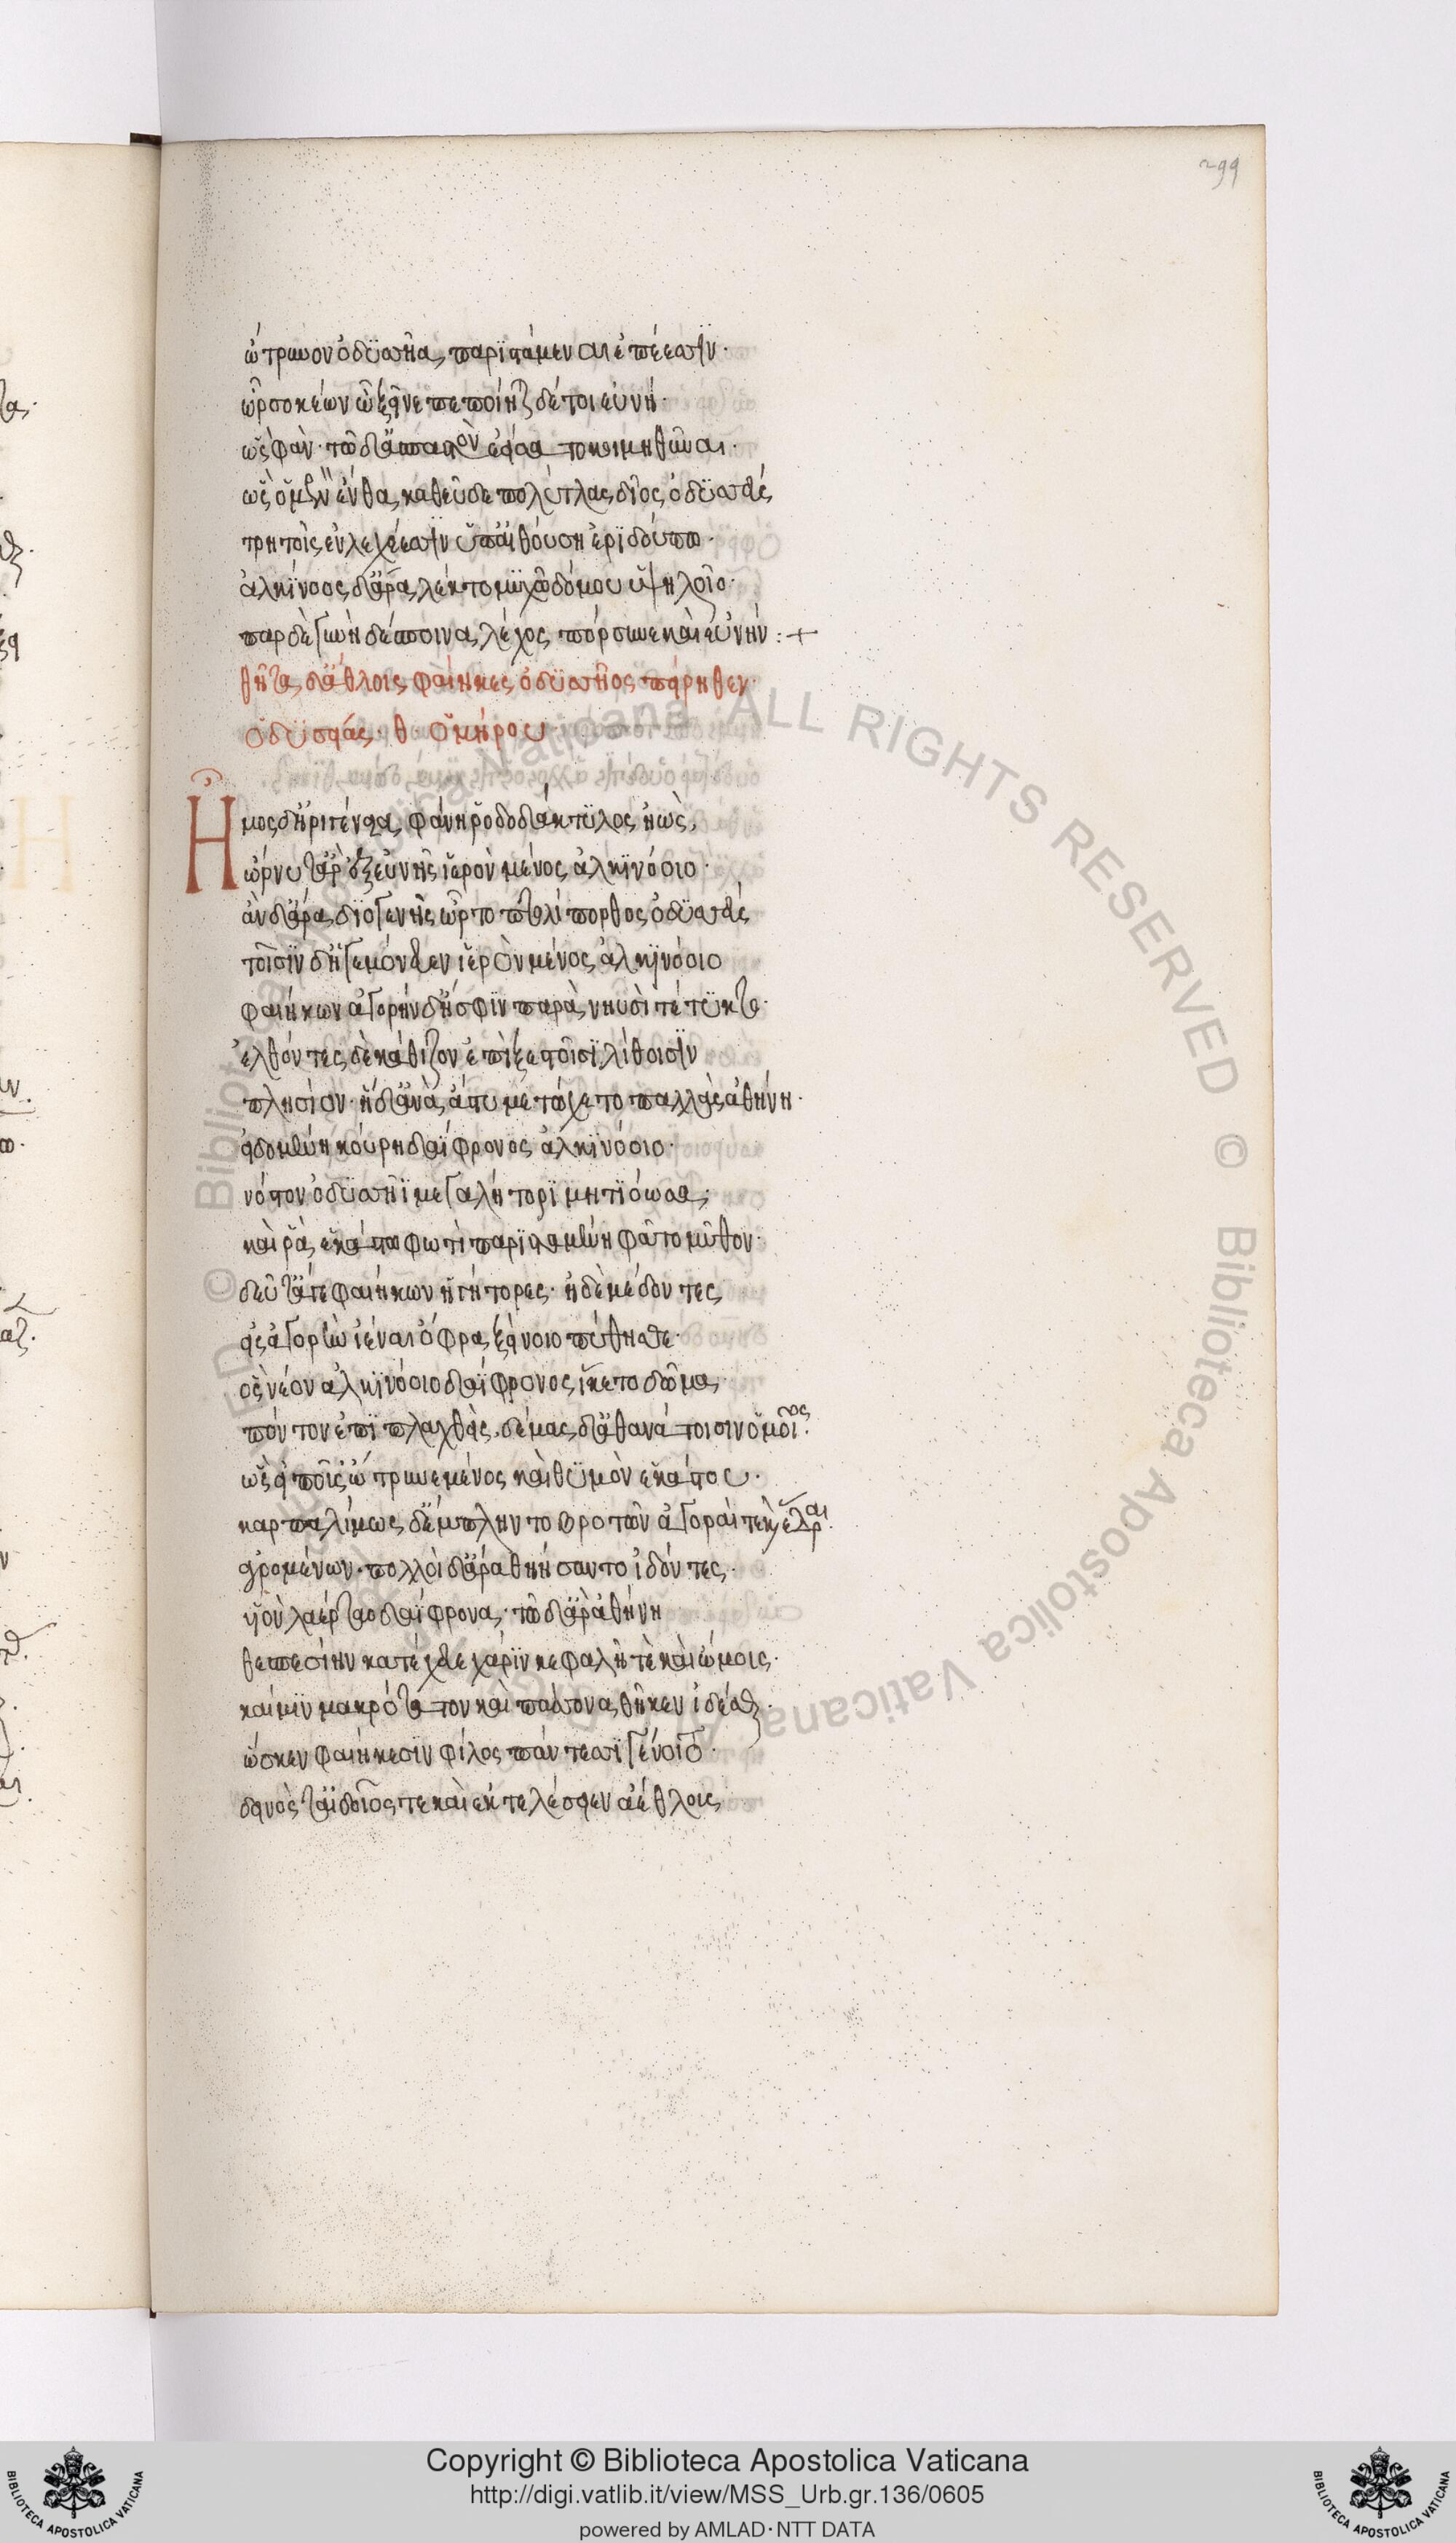 299
ὤτρυνον ὀδϋσσῆα παρϊστάμεναι ἐπέεσσϊν·
ὦρσο κέων ὦ ξεῖνε πεποίηται δέ τοι εὐνή·
ὣς φὰν· τῶ δ' ἀσπαστὸν ἐείσατο κοιμηθῆναι·
ὣς ὁ μὲν ἔνθα καθεῦδε πολύτλας δῖος ὀδϋσσεὺς
τρητοῖς ἐν λεχέεσσϊν ὑπ' αἰθούση ἐρϊδούπω·
ἀλκίνοος δ' ἄρα λέκτο μϋχῶ δόμου ὑψηλοῖο·
παρ δὲ γυνὴ δέσποινα λέχος πόρσυνε καὶ εὐνήν :+
θῆτα δ' ἄθλοις φαίηκες ὀδϋσσῆος πείρηθεν·
ὀδϋσσείας · θ · ὁμήρου
Ἦμος δ' ἠριγένεια φάνη ῥοδοδάκτϋλος ἠὼς,
ὤρνυτ' ἄρ' ἐξ εὐνῆς ἱερὸν μένος ἀλκϊνόοιο·
ἂν δ' ἄρα δϊογενὴς ὦρτο πτολίπορθος ὀδϋσσεὺς
τοῖσϊν δ' ἡγεμόνευεν ἱερὸν μένος ἀλκϊνόοιο
φαιήκων ἀγορήνδ' ἥ σφϊν παρὰ νηυσὶ τέτϋκτο·
ἐλθόντες δὲ κάθιζον ἐπὶ ξεστοῖσϊ λίθοισϊν
πλησίον· ἡ δ' ἀνὰ ἄστυ μετώχετο παλλὰς ἀθήνη·
εἰδομένη κούρη δαΐφρονος ἀλκϊνόοιο·
νόστον ὀδϋσσῆϊ μεγαλήτορϊ μητϊόωσα,
καί ῥα ἑκάστω φωτὶ παρϊσταμένη φάτο μῦθον·
δεῦτ' ἄτε φαιήκων ἡγήτορες· ἠδὲ μέδοντες
εἰς ἀγορὴν ἰέναι ὄφρα ξείνοιο πύθησθε·
ὃς νέον ἀλκϊνόοιο δαΐφρονος ἵκετο δῶμα
πόντον ἐπϊπλαγχθεὶς, δέμας δ' ἀθανάτοισιν ὁμοῖος·
ὣς εἰποῦσ' ὤτρυνε μένος καὶ θϋμὸν ἑκάστου·
καρπαλίμως δ' ἔμπληντο βροτῶν ἀγοραί τε καὶ ἕδραι
ἀγρομένων· πολλοὶ δ' ἄρα θηήσαντο ἰδόντες
υἱὸν λαέρταο δαΐφρονα· τῶ δ' ἄρ' ἀθήνη
θεσπεσίην κατέχευε χάρϊν κεφαλῆ τὲ καὶ ὤμοις·
καί μϊν μακρότατον καὶ πάσσονα θῆκεν ἰδέσθαι·
ὥς κεν φαιήκεσϊν φίλος πάντεσσϊ γένοιτο·
δεινός τ' αἰδοῖός τε καὶ ἐκτελέσειεν ἀέθλους
Copyright © Biblioteca Apostolica Vaticana
http://digi.vatlib.it/view/MSS_Urb.gr.136/0605
powered by AMLAD·NTT DATA